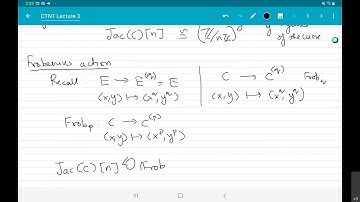 2:03
CTNT Lecture 3
Jac(C)[n] ≅ (ℤ/nℤ)^{2g} g genus of the curve
Frobenius action
Recall E → E^{(q)} = E
(x,y) ↦ (x^q, y^q)
C → C^{(q)} Frob_q
(x,y) ↦ (x^q, y^q)
Frob_p: C → C^{(p)}
(x,y) ↦ (x^p, y^p)
Jac(C)[n] Frob